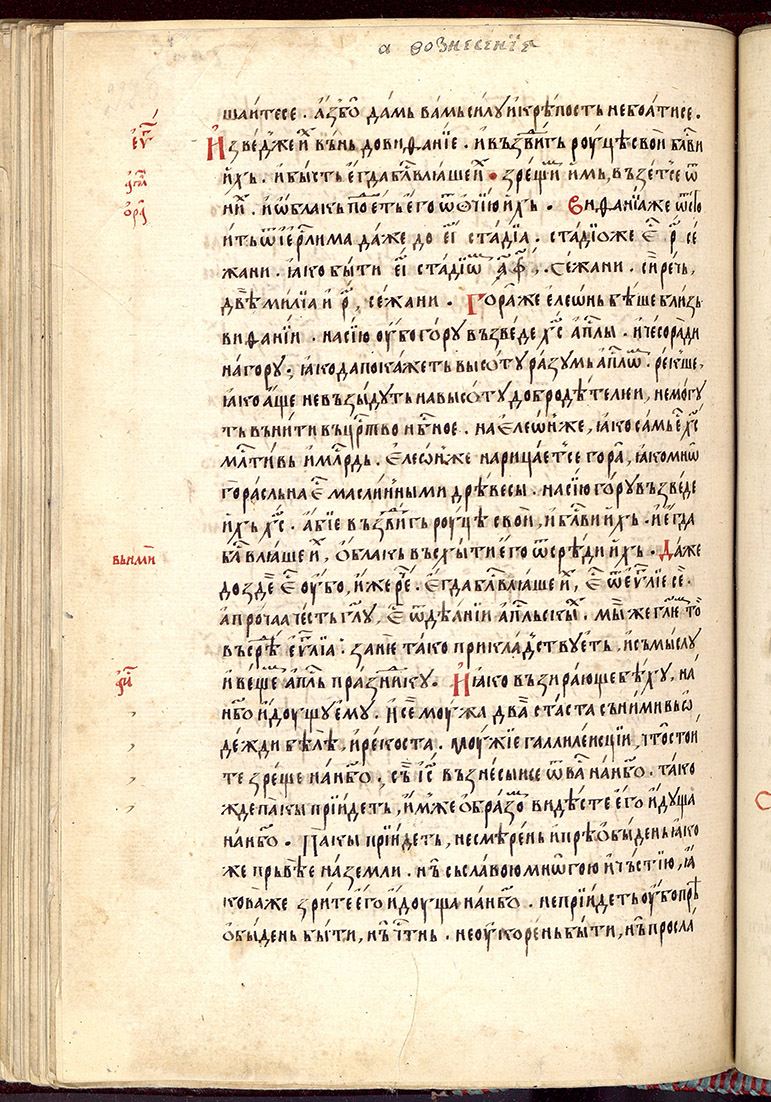 а вознесенїе
шаитесе . а҆́збо̑ да́мь ва́мь си́лу и҆ крѣ́пость не боа́тисе .
еѵ҃г И҆зведже и҆̑ въ́нь до виѳа́нїе . и҆ въздви́гь роу́цѣ свои҆̀ бл҃ви
и҆́хь . и҆ бы́сть е҆гда̀ бл҃влꙗ́ше и҆̑ • зре́щи̑ и҆̀мь, възе́тсе ѿ
ни̑ . и҆ ѡ҆́блакь поет̑ь е҆го̀ ѿ ѻ҆чїю̀ и҆́хь . Виѳанїа же ѿсто
и́ть ѿ і҆ер҃лима да́же до е҃і ста́дїа . ста́дїо же е҆̑ р҃ се́
жани . ꙗ҆́ко бы́ти е҃і ста́дїѡ̑ ҂а҃ф҃, се́жани . си́речь,
двѣ̀ ми́лїа и҆ р҃, се́жани . Гора́ же е҆леѡ́нь бѣ́ше бли́зь
виѳанїи . на сїю̀ оу҆́бо го́ру възведѐ х҃с а҆п҃лы . и҆ чесора́ди
на го́ру ; ꙗ҆́ко да пока́жеть высоту̀ ра́зумь а҆п҃лѡ̑ . ре́кше,
ꙗ҆́ко а҆́ще не възы́дуть на высо́ту доброде́телїи, не мо́гу
ть вьни́ти въ цр҃тво нб҃ное . на е҆леѡ́н же, ꙗ҆́ко са́мь е҆̑ х҃с
мл҃тивь и҆ мл҃рдь . Е҆леѡ́н же нари́цает се гора̀, ꙗ҆́ко мнѡ̑
гора́сльна е҆̑ масли́нными дрѣ́весы . на сїю̀ го́ру възведѐ
и҆́хь х҃с . а҆́бїе въздви́гь роу́цѣ свои҆̀, и҆ бл҃ви и҆́хь . и҆ е҆гда̀
вьнми̑ бл҃влꙗ́ше и҆̑, ѻ҆́блакь въсхы́ти е҆го̀ ѿ срѣдѝ и҆́хь . Да́же
до здѐ е҆̑ оу҆́бо, и҆́же рѐ . Е҆гда̀ бл҃влꙗ́ше и҆̑, е҆̑ ѿ еѵ҃лїе сѐ .
а҆ про́чаа че́сть гл҃у, е҆̑ ѿ дѣа́нїи а҆п҃льскы̑ . мы́ же гл҃ю то̑
въ срѣ̀ еѵ҃лїа : занѐ та́ко прикла́дствуеть, и҆ съмы́слу
и҆ ве́ще а҆п҃ль пра́знику . И҆ ꙗ҆́ко възира́юще бѣ́ху, на́
нб҃о и҆доу́щу е҆му̀ . и҆ сѐ моу́жа два̀ ста́ста съ ни́ми въ ѡ҆
де́жди бѣ́лѣ, и҆ реко́ста . моу́жїе галиле́исции, что̀ стои
те зре́ще на нб҃о . съ̀ і҃с възнесы́исе ѿ ва̑ на нб҃о . та́ко
жде па́кы прїи́деть, и҆́мже ѻ҆́бразо̑ ви́дѣсте е҆го̀ и҆ду́ща
на нб҃о . Па́кы прїи́деть, не смѣ́рень и҆ прѣѻ҆бы́день ꙗ҆́ко
же прьвѣ́е на земли . нь̀ съ сла́вою мнѡ́гою и҆ чъ́стїю, ꙗ҆́
кова́же зри́те е҆го̀ и҆доу́ща на нб҃о . не прїи́деть оу҆́бо прѣ
ѻ҆бы́день бы́ти, нь̀ и҆́стинь . не оу҆коре́нь бы́ти, нь̀ просла́